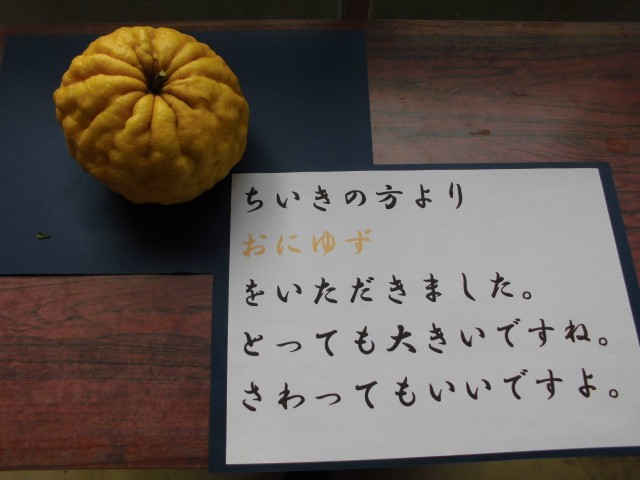 ちいきの方より
おにゆず
をいただきました。
とっても大きいですね。
さわってもいいですよ。